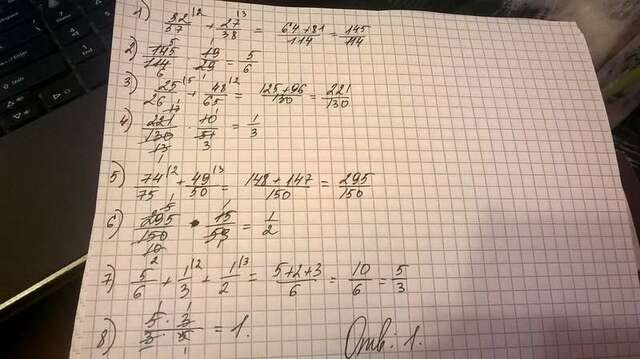 1) 32/57 |2 + 27/38 |3 = 64+81/114 = 145/114
2) 145/114 · 19/29 = 5/6
3) 25/26 |5 + 48/65 |2 = 125+96/130 = 221/130
4) 221/130 · 10/51 = 1/3
5) 74/75 |2 + 49/50 |3 = 148+147/150 = 295/150
6) 295/150 · 15/59 = 1/2
7) 5/6 + 1/3 |2 + 1/2 |3 = 5+2+3/6 = 10/6 = 5/3
8) 5/3 · 3/5 = 1. Отв: 1.